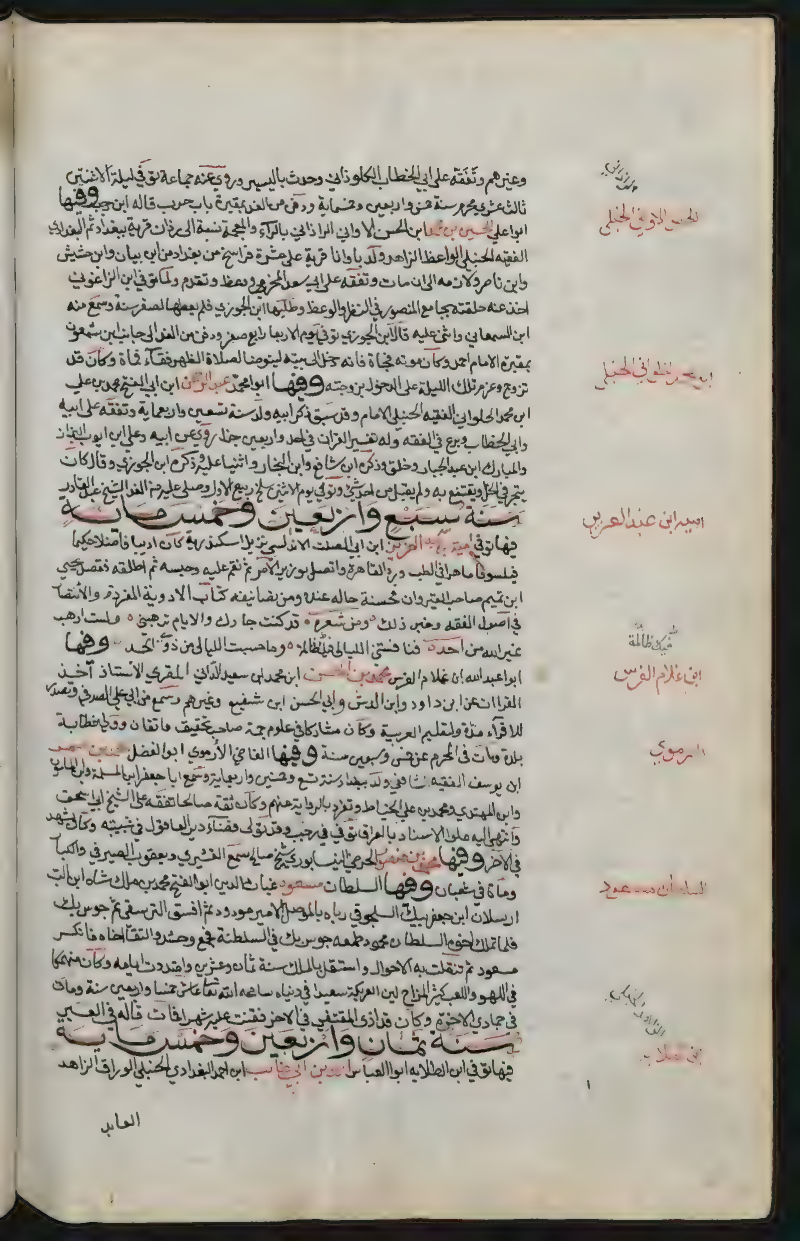 وغيرهم وتفقه على ابي الخطاب الكلوذاني وحدث باليسير وروى عنه جماعة توفي ليلة الاثنين
ثالث عشري محرم سنة ست واربعين وخمسماية ودفن من الغد بمقبرة باب حرب قاله ابن رجب وفيها
ابو علي الحسين بن محمد ابن الحسن الاواني الراذاني بالراء والمعجمة نسبة الى راذان قرية ببغداد ثم البغدادي
الفقيه الحنبلي الواعظ الزاهد ولد باوانا قرية على عشرة فراسخ من بغداد من ابن بيان وابن حشيش
وابن ناصر ولازمه الى ان مات وتفقه على ابي سعد المخرمي ووعظ وتقدم ولما توفي ابن الزاغوني
اخذ عنه حلقته بجامع المنصور في النظر والوعظ وطلبها ابن الجوزي فلم يعطها لصغر سنه وسمع منه
ابن السمعاني واثنى عليه قال ابن الجوزي توفي يوم الاربعا رابع صفر ودفن من الغد الى جانب ابن سمعون
بمقبرة الامام احمد وكان موته فجاة فانه دخل الى بيته ليتوضا لصلاة الظهر فقاء فمات وكان قد
تزوج وعزم تلك الليلة على الدخول بزوجته وفيها ابو محمد عبد الرحمن ابن ابي الفتح محمد بن علي
ابن محمد الحلواني الفقيه الحنبلي الامام وقد سبق ذكر ابيه ولد سنة تسعين واربعماية وتفقه على ابيه
وابي الخطاب وبرع في الفقه وله تفسير القران في احد واربعين جزا روى عن ابيه وعلي ابن ايوب البزان
والمبارك ابن عبد الجبار وخلق وذكره ابن شافع وابن النجار واثنيا عليه وذكره ابن الجوزي وقال كان
يتجر في الخل ويقتنع به ولم يقبل من احد شي وتوفي يوم الاثنين سلخ ربيع الاول وصلى عليه من الغد الشيخ عبد القادر
سنة سبع واربعين وخمس ماية
فيها توفي امية بن عبد العزيز ابن ابي الصلت الاندلسي نزيل اسكندرية كان اديبا فاضلا حكيما
فيلسوفا ماهرا في الطب ورد القاهرة واتصل بوزير الآمر ثم نقم عليه وحبسه ثم اطلقه فقصد يحيى
ابن تميم صاحب القيروان فحسنت حاله عنده ومن تصانيفه كتاب الادوية المفردة والانتصار
في اصول الفقه وغير ذلك ومن شعره قد كنت جارك والايام ترهبني ولست ارهب
غير الله من احد فنافستني الليالي فيك ظالمة وما حسبت الليالي من ذوي الحسد وفيها
ابو عبد الله ابن غلام الفرس محمد بن الحسن ابن محمد ابن سعيد الداني المقري الاستاذ اخذ
القراات عن ابن داود وابن الدش وابي الحسن ابن شفيع وغيرهم وسمع من ابي علي الصدفي وتصدر
للاقراء مدة ولتعليم العربية وكان مشاركا في علوم جمة صاحب تحقيق واتقان وولي خطابة
بلده ومات في المحرم عن خمس وسبعين سنة وفيها القاضي الارموي ابو الفضل محمد بن عمر
ابن يوسف الفقيه الشافعي ولد ببغداد سنة تسع وخمسين واربعماية وسمع ابا جعفر ابن المسلمة وابن المامون
وابن المهتدي ومحمد بن علي الخياط وتفرد بالرواية عنهم وكان ثقة صالحا تفقه على الشيخ ابي اسحق
وانتهى اليه علو الاسناد بالعراق توفي في رجب وقد تولى قضاء دير العاقول في شبيبته وكان يشهد
في الاخر وفيها محمد بن منصور الحرضي النيسابوري شيخ صالح سمع القشيري ويعقوب الصيرفي والكبار
ومات في شعبان وفيها السلطان مسعود غياث الدين ابو الفتح محمد بن ملك شاه ابن الب
ارسلان ابن جعفر بيك السلجوقي رباه بالموصل الامير مودود ثم اقسنقر البرسقي ثم جوس بك
فلما تملك اخوه السلطان محمود طمعه جوس بك في السلطنة فجمع وحشد والتقا اخاه فانكسر
مسعود ثم تنقلت به الاحوال واستقل بالملك سنة ثمان وعشرين وامتدت ايامه وكان منهمكا
في اللهو واللعب كثير المزاح لين العريكة سعيدا في دنياه سامحه الله تعالى عاش خمسا واربعين سنة ومات
في جمادى الاخرة وكان قد اذى المقتفي في الاخر فقنت عليه شهرا فمات قاله في العبر
سنة ثمان واربعين وخمس ماية
فيها توفي ابن الطلايه ابو العباس احمد بن ابي غالب ابن احمد البغدادي الحنبلي الوراق الزاهد
العابد
الحسن الاواني الحنبلي
ابو محمد الحلواني الحنبلي
امية ابن عبد العزيز
فيك ظالمة
ابن غلام الفرس
الارموي
السلطان مسعود
ابن الطلايه